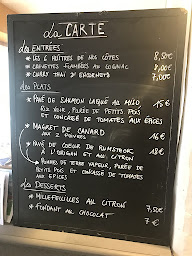 La CARTE
Les ENTRÉES
LES 6 HUÎTRES DE NOS CÔTES 8,50€
CREVETTES FLAMBÉES AU COGNAC 8,00€
7,00€
Les PLATS
PAVÉ DE SAUMON LAQUÉ AU MISO 15€
RIZ NOIR, PURÉE DE PETITS POIS
ET CONCASSÉ DE TOMATES AUX ÉPICES
MAGRET DE CANARD 16€
AUX 2 POIVRES
PAVÉ DE COEUR DE RUMSTECK 18€
À L'ORIGAN ET AU CITRON
POMMES DE TERRE VAPEUR, PURÉE DE
PETITS POIS ET CONCASSÉ DE TOMATES
AUX ÉPICES
Les DESSERTS
MILLEFEUILLES AU CITRON 7,50€
FONDANT AU CHOCOLAT 7€